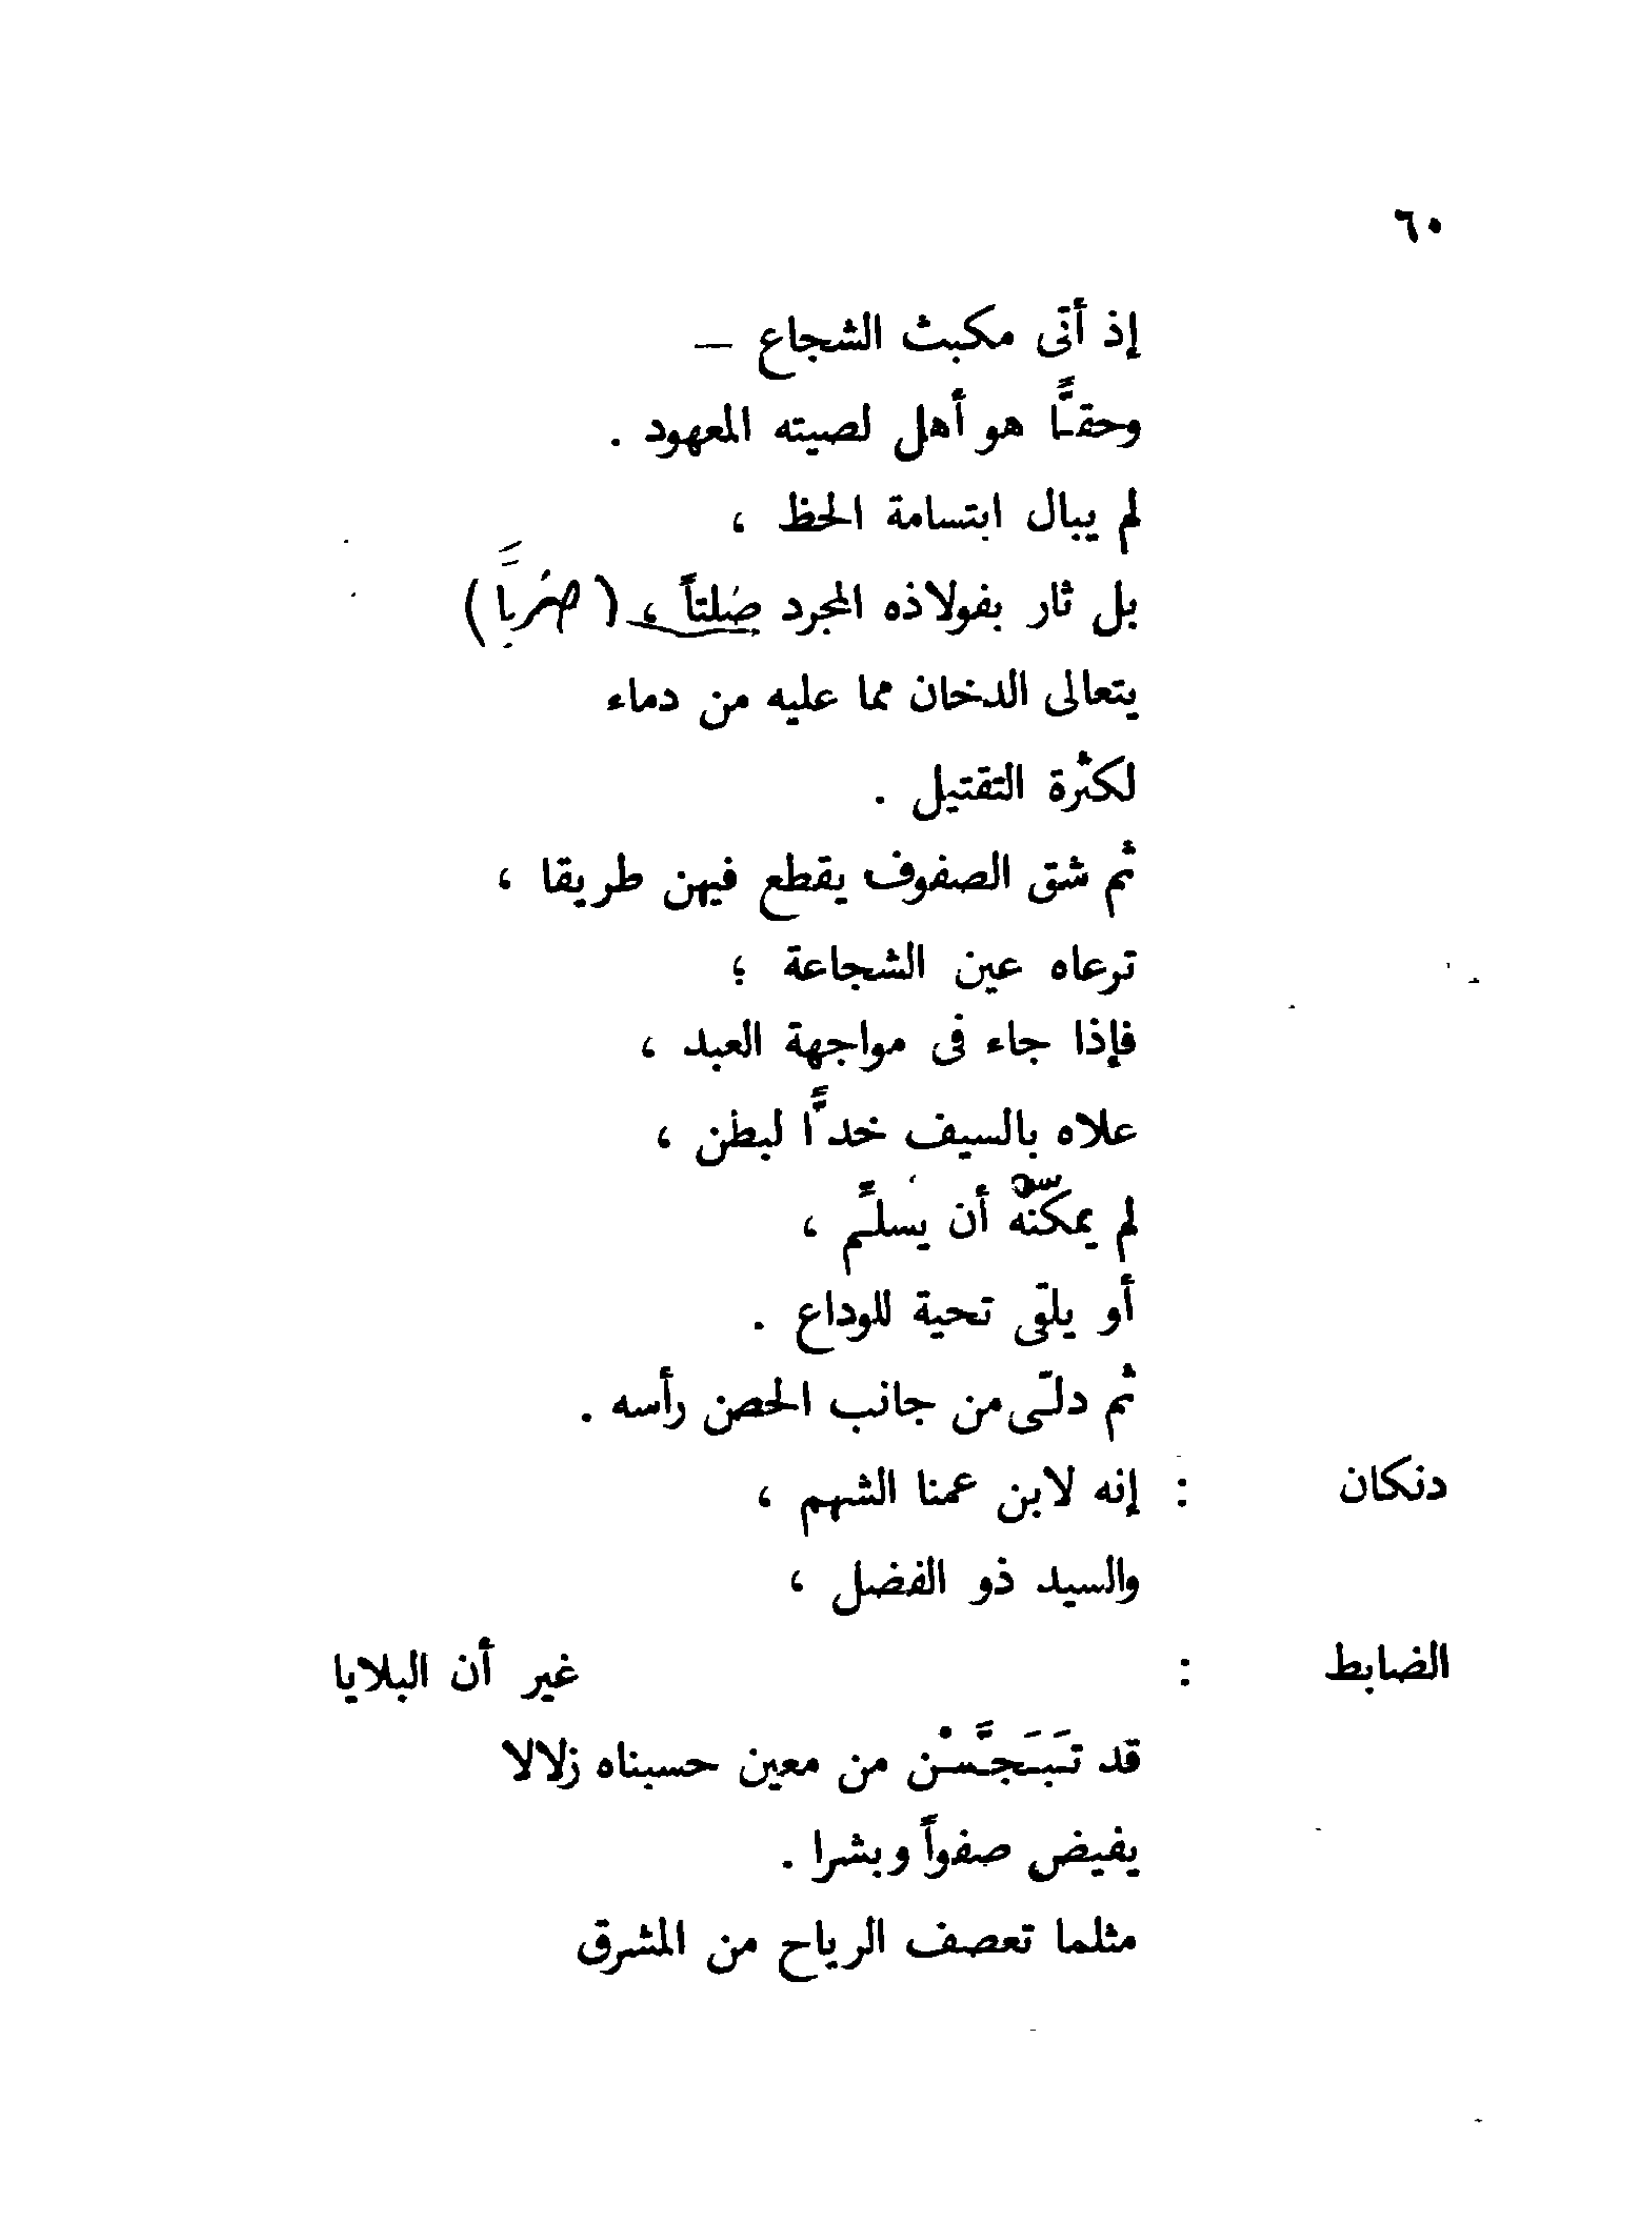 ٦٠
إذ أتى مكبث الشجاع —
وحقًّا هو أهل لصيته المعهود .
لم يبال ابتسامة الحظ ،
بل ثار بفولاذه المجرد صَلتاً ، (ضرباً)
يتعالى الدخان مما عليه من دماء
لكثرة التقتيل .
ثم شق الصفوف يقطع فيهن طريقا ،
ترعاه عين الشجاعة ؛
فإذا جاء فى مواجهة العبد ،
علاه بالسيف خدًّا لبطن ،
لم يمكنه أن يسلم ،
أو يلقى تحية للوداع .
ثم دلّى من جانب الحصن رأسه .
دنكان : إنه لابن عمنا الشهم ،
والسيد ذو الفضل ،
الضابط : غير أن البلايا
قد تَبَجَّسْن من معين حسبناه زلالا
يفيض صفواً وبشرا .
مثلما تعصف الرياح من المشرق